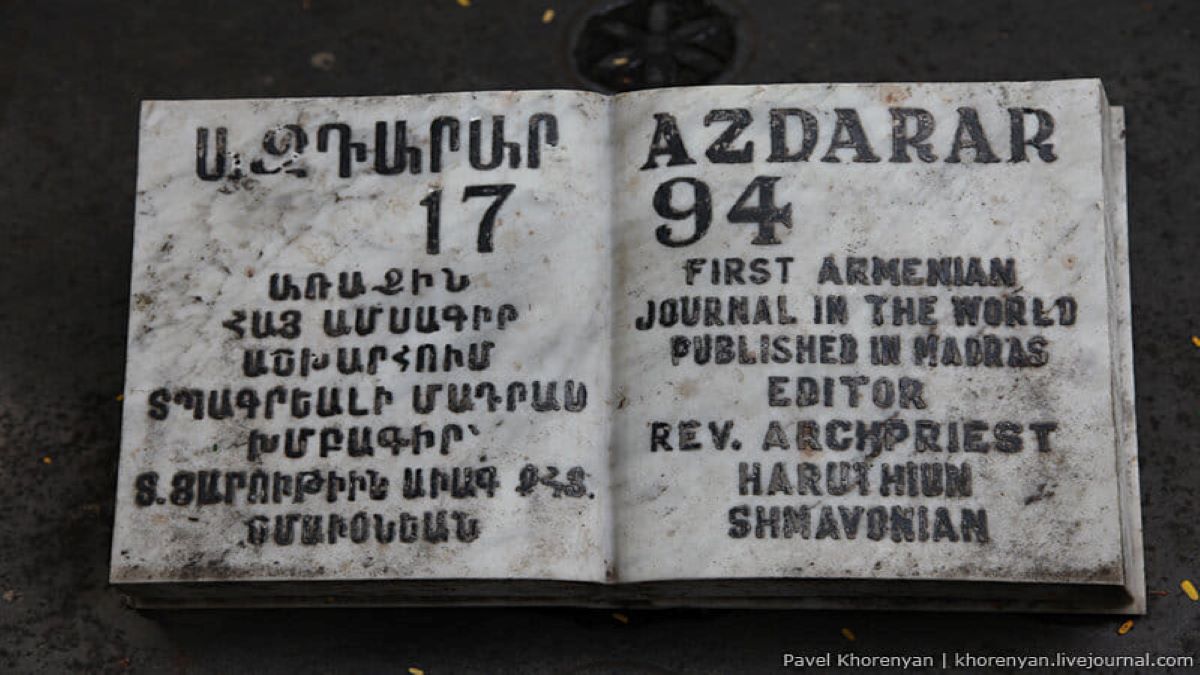 ԱԶԴԱՐԱՐ
17
ԱՌԱՋԻՆ
ՀԱՅ ԱՄՍԱԳԻՐ
ԱՇԽԱՐՀՈՒՄ
ՏՊԱԳՐԵԱԼ Ի ՄԱԴՐԱՍ
ԽՄԲԱԳԻՐ՝
Տ.ՅԱՐՈՒԹԻՒՆ ԱՒԱԳ
ՇՄԱՒՕՆԵԱՆ
AZDARAR
94
FIRST ARMENIAN
JOURNAL IN THE WORLD
PUBLISHED IN MADRAS
EDITOR
REV. ARCHPRIEST
HARUTHIUN
SHMAVONIAN
Pavel Khorenyan | khorenyan.livejournal.com